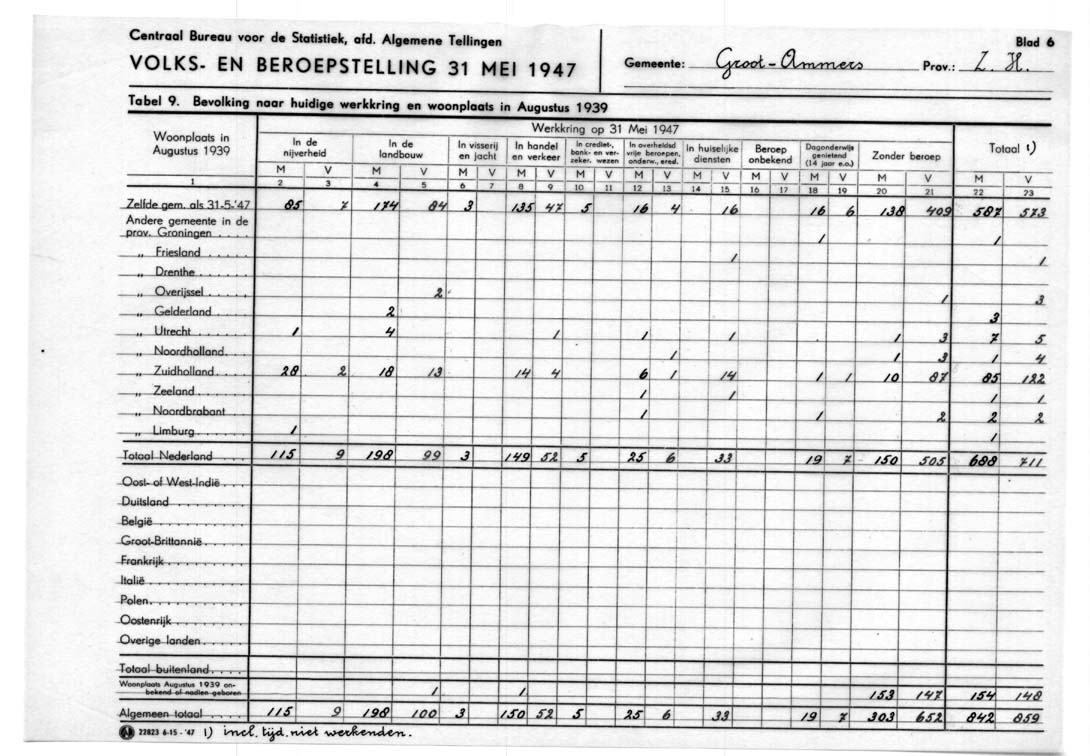 Centraal Bureau voor de Statistiek, afd. Algemene Tellingen
VOLKS- EN BEROEPSTELLING 31 MEI 1947
Gemeente: Groot-Ammers Prov.: Z. H.
Blad 6
Tabel 9. Bevolking naar huidige werkkring en woonplaats in Augustus 1939
Woonplaats in Augustus 1939
Werkkring op 31 Mei 1947
In de nijverheid In de landbouw In visserij en jacht In handel en verkeer In crediet-, bank- en verzeker. wezen In overheidsd vrije beroepen, onderw., ered. In huiselijke diensten Beroep onbekend Dagonderwijs genietend (14 jaar e.o.) Zonder beroep Totaal 1)
M V M V M V M V M V M V M V M V M V M V M V
1 2 3 4 5 6 7 8 9 10 11 12 13 14 15 16 17 18 19 20 21 22 23
Zelfde gem. als 31-5-'47 85 7 174 84 3 135 47 5 16 4 16 16 6 138 409 587 573
Andere gemeente in de
prov. Groningen . . . . 1 1
„ Friesland . . . . . 1 1
„ Drenthe . . . . . .
„ Overijssel . . . . . 2 1 3
„ Gelderland . . . . 2 3
„ Utrecht . . . . . . 1 4 1 1 1 1 3 7 5
„ Noordholland . . . 1 1 3 1 4
„ Zuidholland . . . . 28 2 18 13 14 4 6 1 14 1 1 10 87 85 122
„ Zeeland . . . . . . 1 1 1 1
„ Noordbrabant . . 1 1 2 2 2
„ Limburg . . . . . . 1 1
Totaal Nederland . . . . 115 9 198 99 3 149 52 5 25 6 33 19 7 150 505 688 711
Oost- of West-Indië . . .
Duitsland . . . . . . . .
België . . . . . . . . . .
Groot-Brittannië . . . . .
Frankrijk . . . . . . . . .
Italië . . . . . . . . . . .
Polen . . . . . . . . . . .
Oostenrijk . . . . . . . .
Overige landen . . . . .
Totaal buitenland . . . .
Woonplaats Augustus 1939 on-
bekend of nadien geboren 1 1 153 147 154 148
Algemeen totaal . . . . . 115 9 198 100 3 150 52 5 25 6 33 19 7 303 652 842 859
22823 6-15 - '47 1) incl. tijd. niet werkenden.